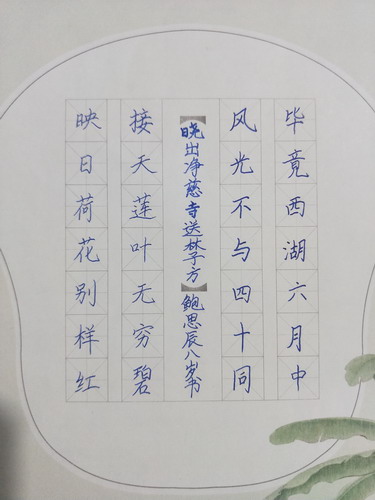 毕竟西湖六月中
风光不与四十同
【晓出净慈寺送林子方】鲍思辰八岁书
接天莲叶无穷碧
映日荷花别样红